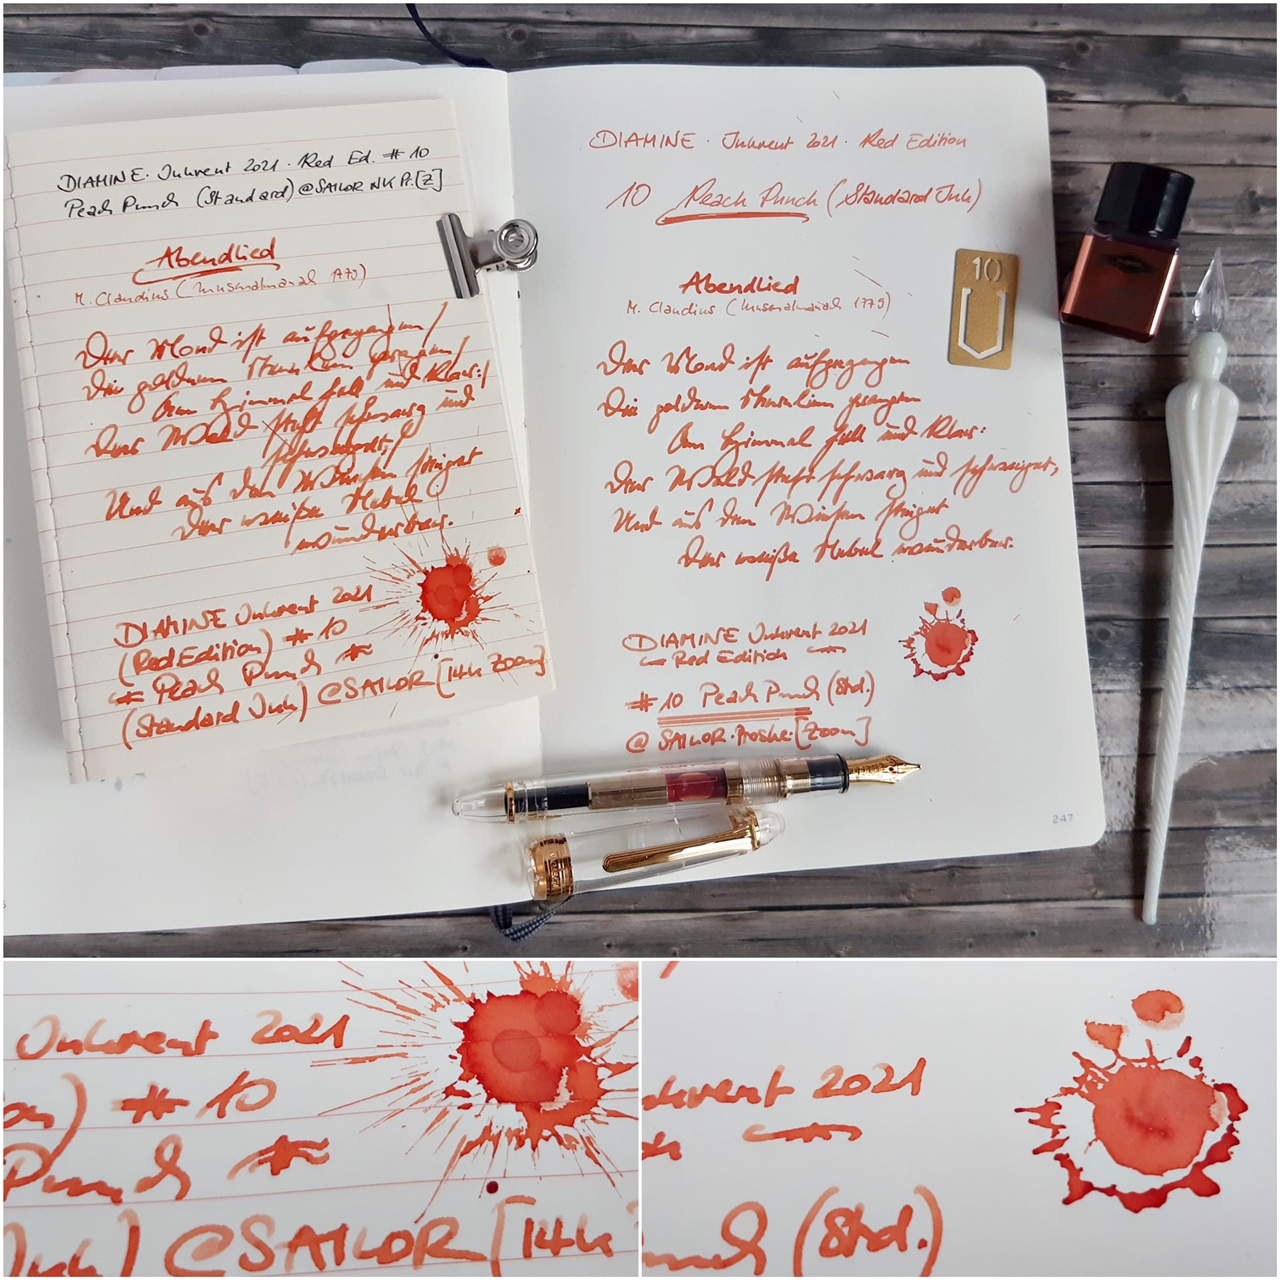 DIAMINE · Inkvent 2021 · Red Ed. # 10
Peach Punch (Standard) @SAILOR NK Pr. [Z]
Abendlied
M. Claudius (Musenalmanach 1779)
Der Mond ist aufgegangen/
Die goldnen Sternlein prangen/
Am Himmel hell und klar:/
Der Wald steht schwarz und
schweiget,/
Und aus den Wiesen steiget
Der weiße Nebel
wunderbar.
DIAMINE Inkvent 2021
(Red Edition) # 10
Peach Punch
(Standard Ink) @SAILOR [14k Zoom]
DIAMINE · Inkvent 2021 · Red Edition
10 Peach Punch (Standard Ink)
Abendlied
M. Claudius (Musenalmanach 1779)
Der Mond ist aufgegangen
Die goldnen Sternlein prangen
Am Himmel hell und klar:
Der Wald steht schwarz und schweiget,
Und aus den Wiesen steiget
Der weiße Nebel wunderbar.
DIAMINE Inkvent 2021
Red Edition
# 10 Peach Punch (Std.)
@ SAILOR · [Zoom]
10
247
Inkvent 2021
on) # 10
Punch
Ink) @SAILOR [14k
nkvent 2021
unch (Std.)